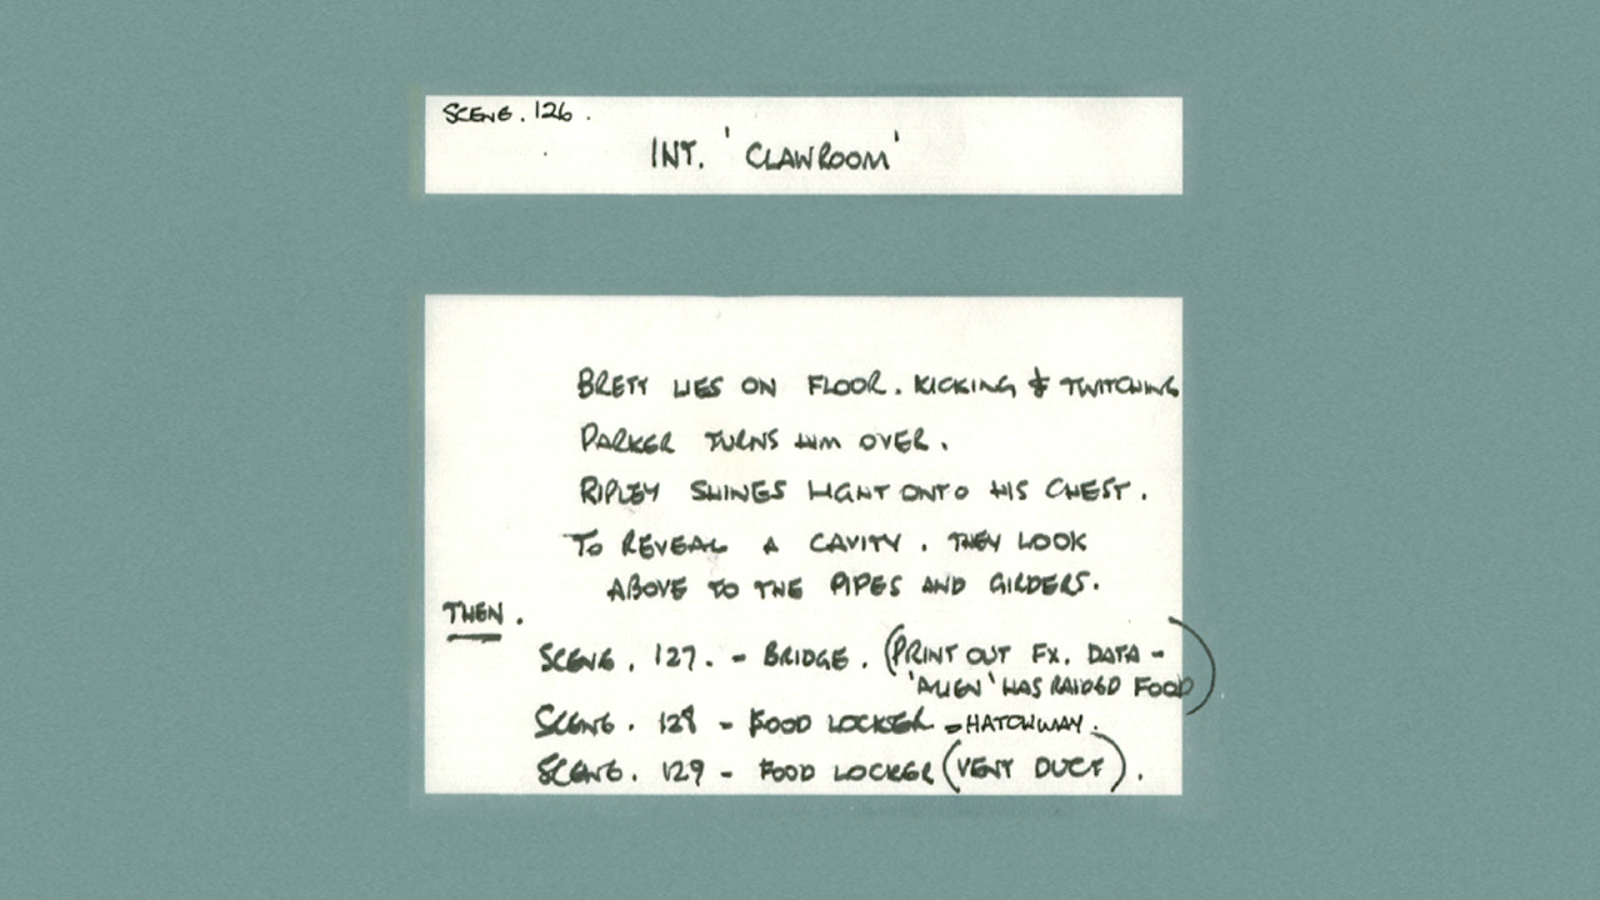 SCENE. 126.
INT. 'CLAWROOM'
BRETT LIES ON FLOOR. KICKING & TWITCHING
PARKER TURNS HIM OVER.
RIPLEY SHINES LIGHT ONTO HIS CHEST.
TO REVEAL A CAVITY. THEY LOOK
ABOVE TO THE PIPES AND GIRDERS.
THEN.
SCENE. 127. - BRIDGE. (PRINT OUT FX. DATA -
'ALIEN' HAS RAIDED FOOD)
SCENE. 128 - FOOD LOCKER - HATCHWAY.
SCENE. 129 - FOOD LOCKER (VENT DUCT).